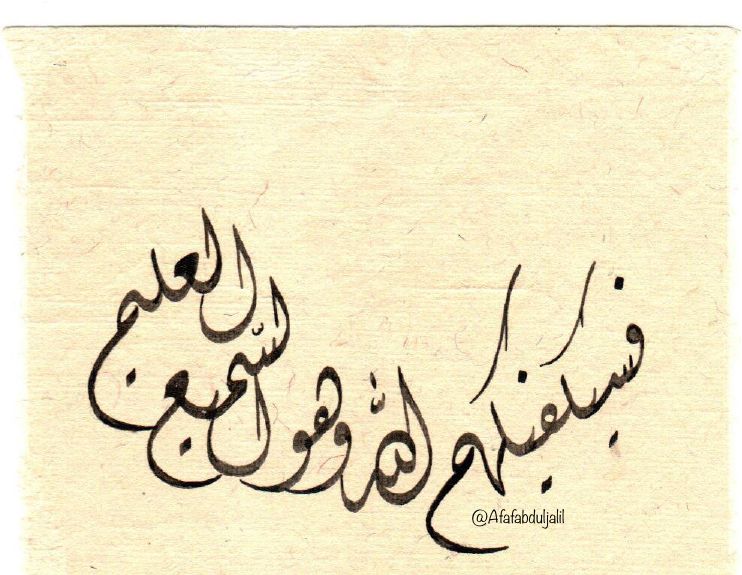 فسيكفيكهم الله وهو السميع العليم
@Afafabduljalil